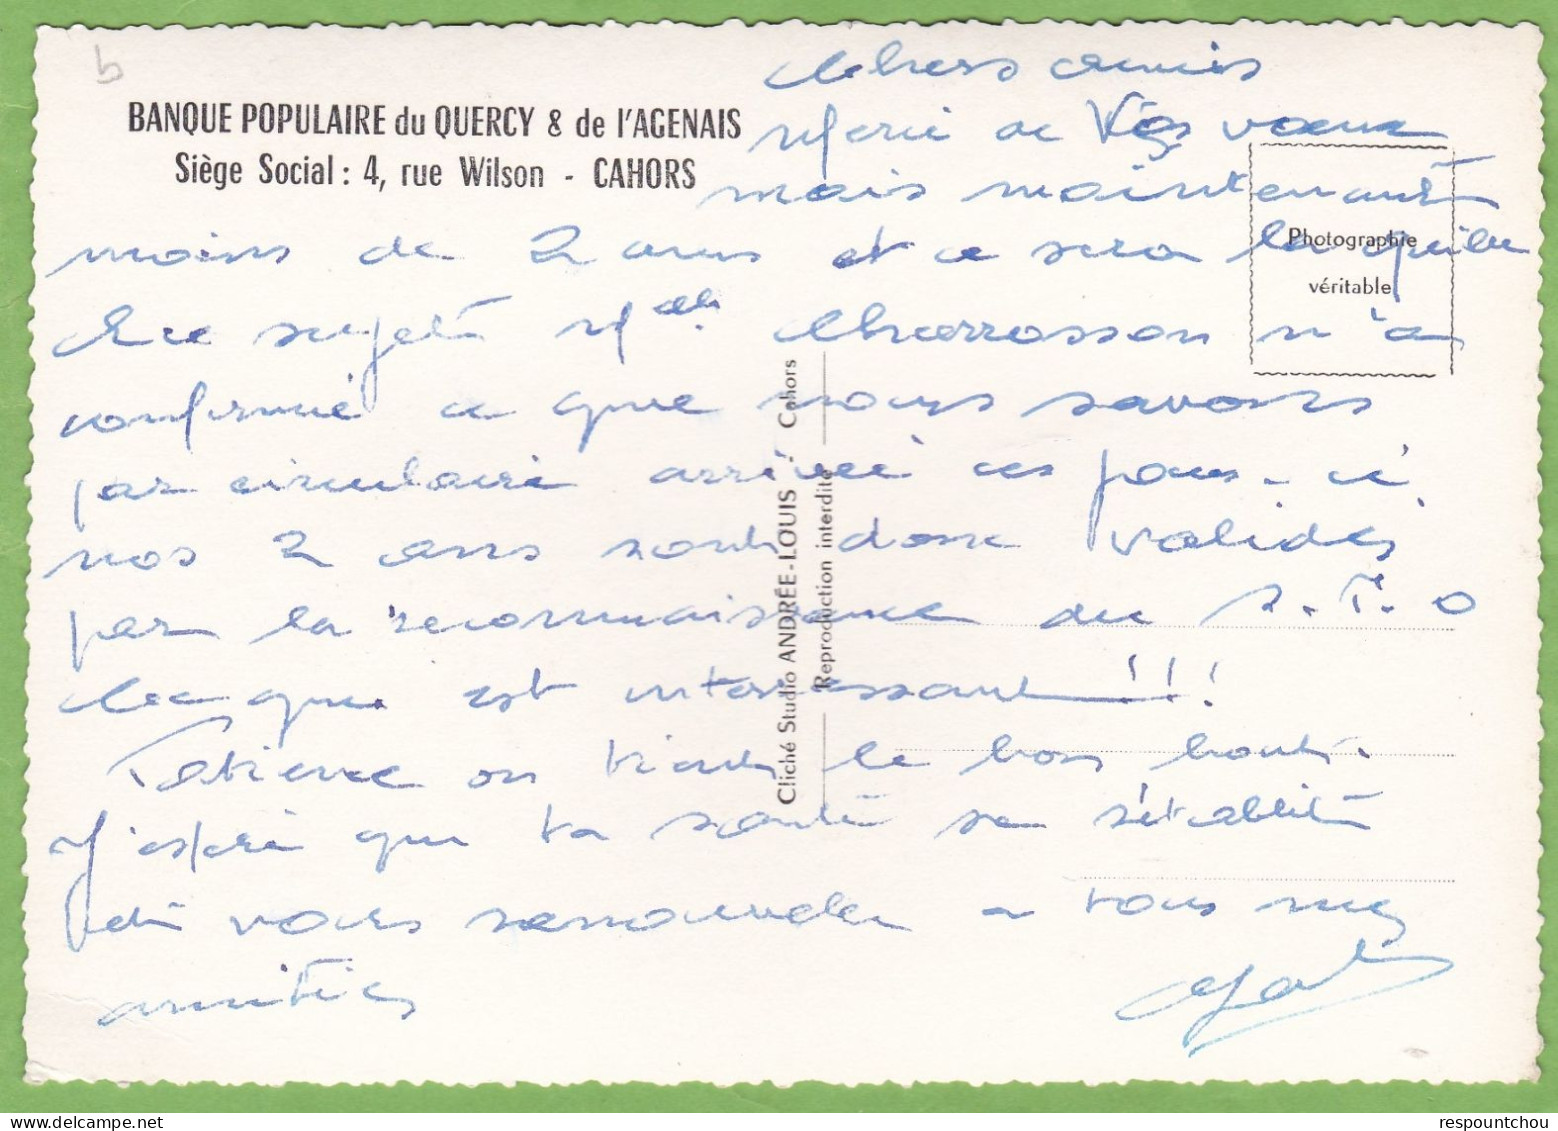 b
BANQUE POPULAIRE du QUERCY & de l'AGENAIS
Siège Social : 4, rue Wilson - CAHORS
Chers amis
Merci de Vos voeux
mais maintenant
moins de 2 ans et ce sera la quille
Photographie
véritable
A ce sujet Charrosson m'a
confirmé ce que nous savons
par circulaire arrivée ces jours-ci
nos 2 ans sont donc validés
par la reconnaissance du S.T.O
Ce qui est intéressant !!!
Patience on tient le bon bout.
J'espère que ta santé se rétablit
vous renouveler à tous mes
amitiés
Cliché Studio ANDRÉE-LOUIS - Cahors
Reproduction interdite
respountchou